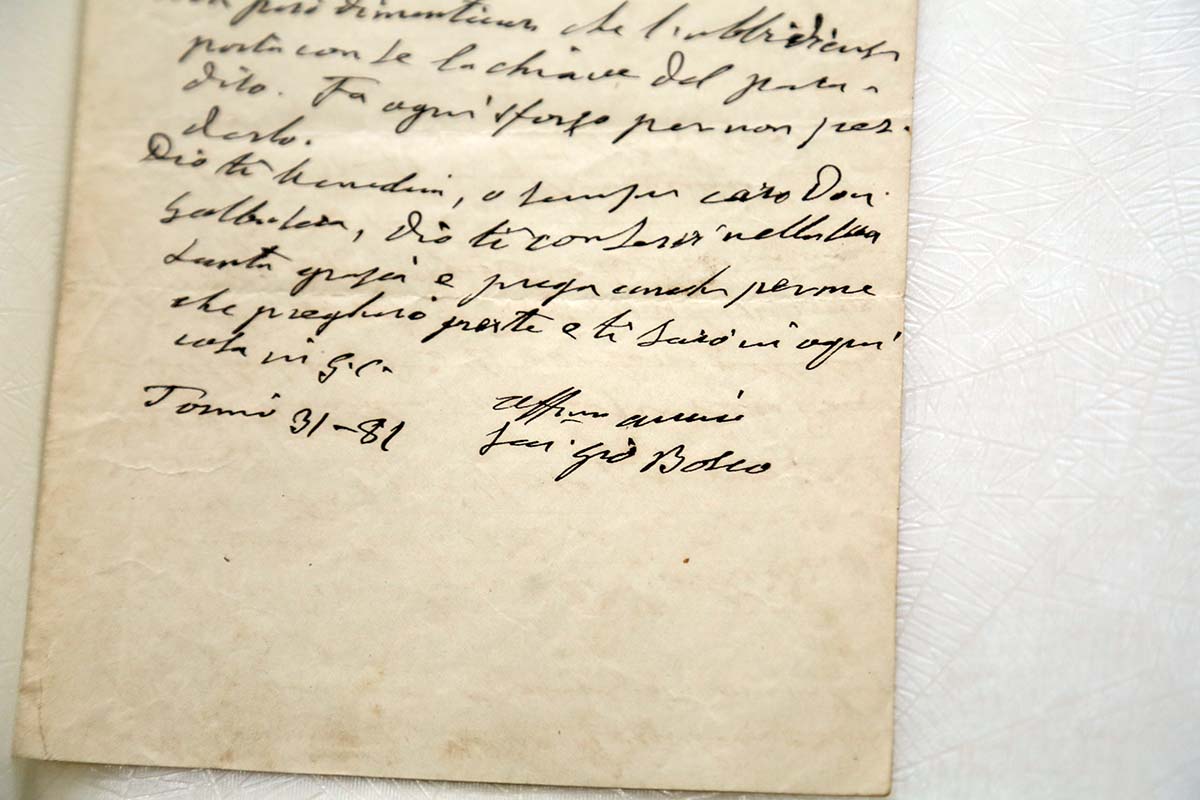 però dimenticar che l'ubbidienza
porta con se la chiave del para-
diso. Fa ogni sforzo per non per-
derlo.
Dio ti benedica, o sempre caro Don
Dio ti conservi nella sua
santa grazia e prega anche per me
che pregherò per te e ti sarò in ogni
cosa in G. C.
Torino 31 - 81
aff.mo amico
Sac. Gio Bosco